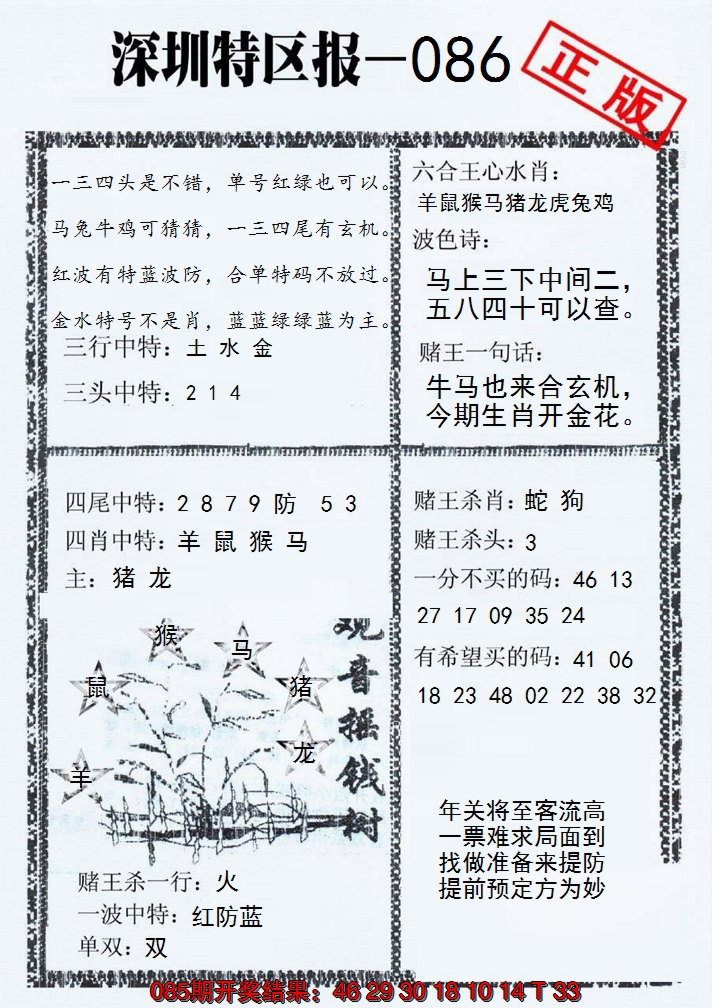 深圳特区报—086
正版
一三四头是不错，单号红绿也可以。
马兔牛鸡可猜猜，一三四尾有玄机。
红波有特蓝波防，合单特码不放过。
金水特号不是肖，蓝蓝绿绿蓝为主。
三行中特：土 水 金
三头中特：2 1 4
六合王心水肖：
羊鼠猴马猪龙虎兔鸡
波色诗：
马上三下中间二，
五八四十可以查。
赌王一句话：
牛马也来合玄机，
今期生肖开金花。
四尾中特：2 8 7 9 防 5 3
四肖中特：羊 鼠 猴 马
主：猪 龙
猴
马
鼠
猪
龙
羊
观音摇钱树
赌王杀一行：火
一波中特：红防蓝
单双：双
赌王杀肖：蛇 狗
赌王杀头：3
一分不买的码：46 13
27 17 09 35 24
有希望买的码：41 06
18 23 48 02 22 38 32
年关将至客流高
一票难求局面到
找做准备来提防
提前预定方为妙
085期开奖结果：46 29 30 18 10 14 T 33